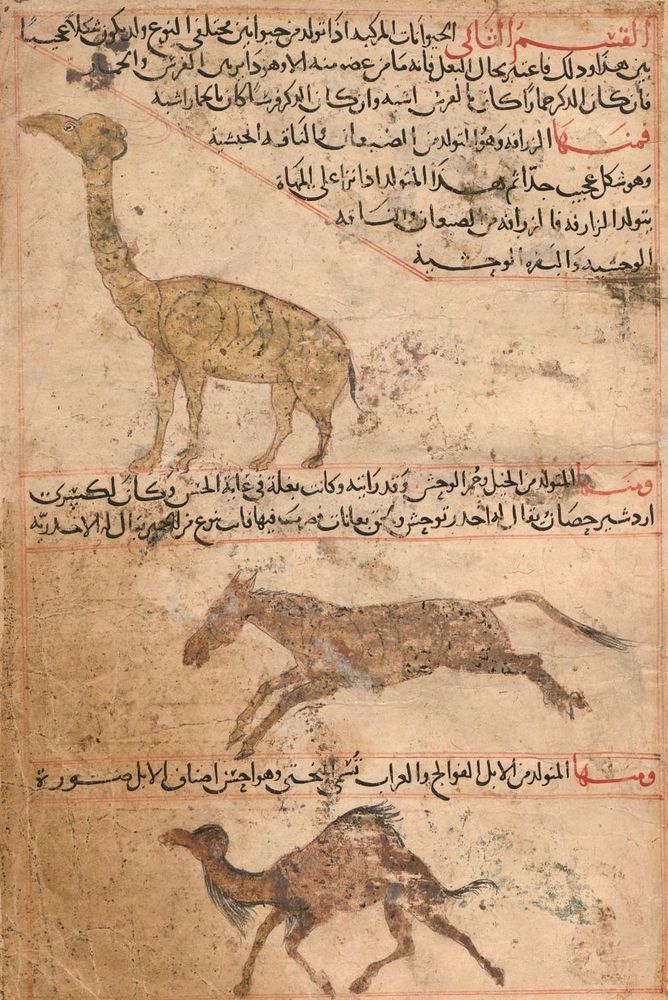 القسم الثاني الحيوانات المركبه اذا تولد من حيوانين مختلفي النوع والد يكون شكلا عجيبا
بين هذا وذلك فاعتبر بحال البغل فانه ما من عضو منه الا وهو دابر بين الفرس والحمار
فان كان الذكر حمارا كان بالفرس اشبه وان كان الذكر فرسا كان بالحمار اشبه
فمنها الزرافه وهو المتولد من الضبعان والناقه الحبشية
وهو شكل عجيب جدا ثم هذا المتولد اذا نزا على المهاة
يتولد الزرافه فالزرافه من الضبعان والناقه
الوحشيه والبقره الوحشية
ومنها المتولد من الخيل وحمر الوحش وقد رايته وكانت بغلة في غاية الحسن وكان لكسرى
اردشير حصان يقال له اخدر توحش وبقي بعانات وضرب فيها فانت نوع من الحمير يقال له الاخدريه
ومنها المتولد من الابل الفوالج والعراب تسمى البختي وهو احسن اصناف الابل صورة